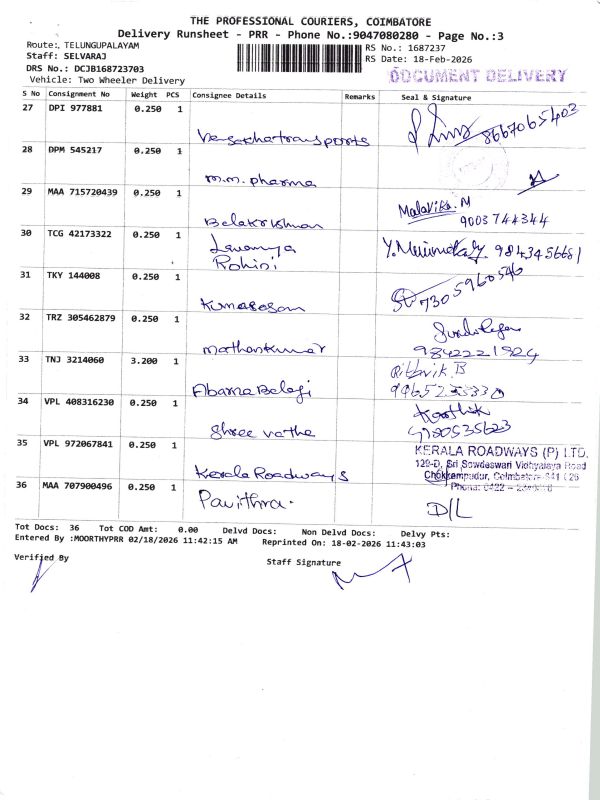 THE PROFESSIONAL COURIERS, COIMBATORE
Delivery Runsheet - PRR - Phone No.:9047080280 - Page No.:3
Route: TELUNGUPALAYAM
RS No.: 1687237
Staff: SELVARAJ
RS Date: 18-Feb-2026
DRS No.: DCJB168723703
DOCUMENT DELIVERY
Vehicle: Two Wheeler Delivery
S No Consignment No Weight PCS Consignee Details Remarks Seal & Signature
27 DPI 977881 0.250 1
8667065402
28 DPM 545217 0.250 1
m.m. pharma
29 MAA 715720439 0.250 1
Malavika. M
Balakrishnan 9003744344
30 TCG 42173322 0.250 1
Lavanya
Rohini
31 TKY 144008 0.250 1
7305960546
Kumaresan
32 TRZ 305462879 0.250 1
mathankumar
33 TNJ 3214060 3.200 1
Rithvik. B
34 VPL 408316230 0.250 1
Karthik
35 VPL 972067841 0.250 1
KERALA ROADWAYS (P) LTD.
129-D, Sri Sowdeswari Vidhyalaya Road
Kerala Roadways
Chokkampudur, Coimbatore-641 026
36 MAA 707900496 0.250 1
Pavithra. D/L
Tot Docs: 36 Tot COD Amt: 0.00 Delvd Docs: Non Delvd Docs: Delvy Pts:
Entered By :MOORTHYPRR 02/18/2026 11:42:15 AM Reprinted On: 18-02-2026 11:43:03
Verified By
Staff Signature